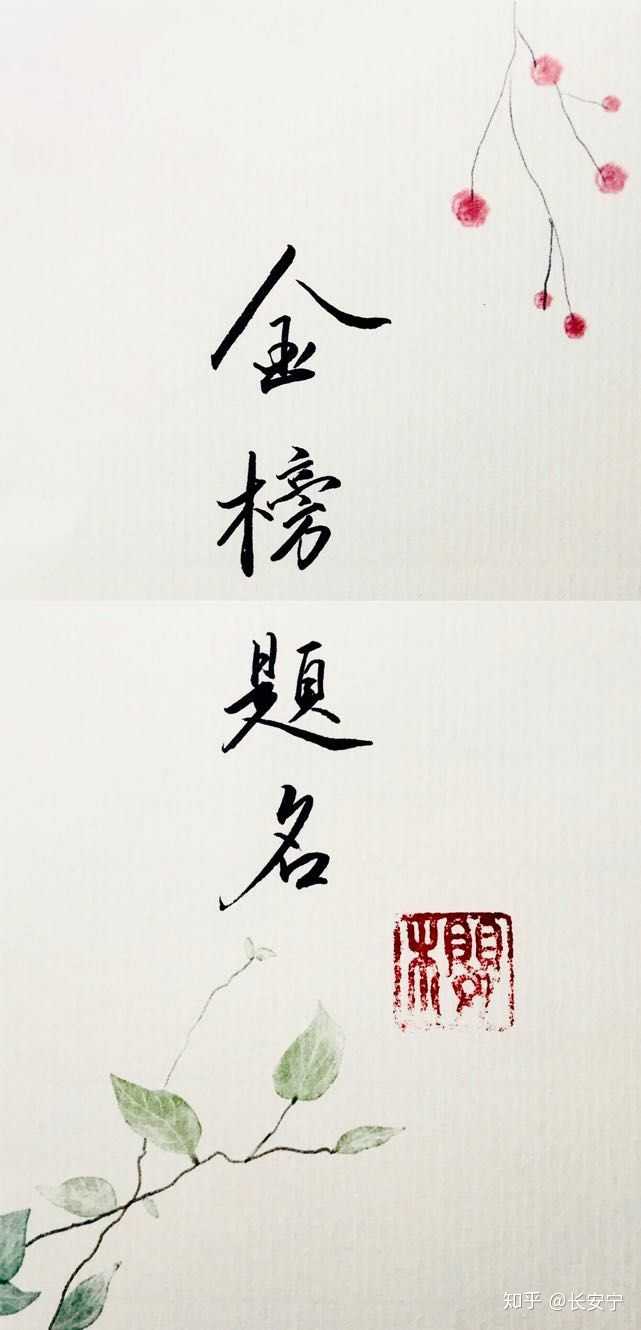 金榜题名
櫻
知乎 @长安宁